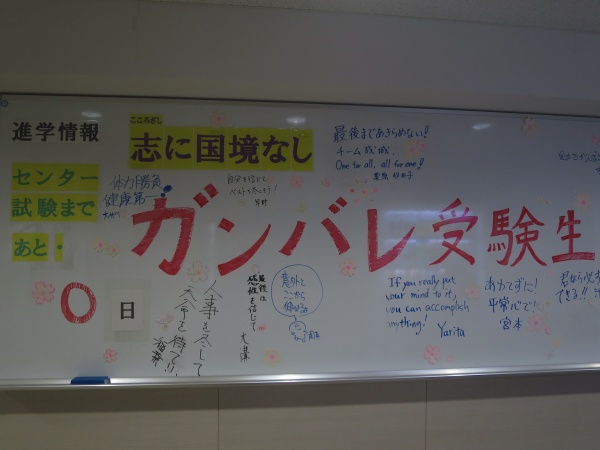 進学情報
こころざし
志に国境なし
センター
試験まで
あと・
0
日
体力勝負
健康第一
自分を信じて
ベストを尽そう!
最後まであきらめない!
チーム成城
One for all, all for one!
ガンバレ受験生
人事を尽して
天命を待つ!!
最後は
感性を信じて
意外と
ここから
伸びる
If you really put
your mind to it,
you can accomplish
anything!
Yarita
あわてずに!
平常心で!
宮本
君なら必ず
できる!!